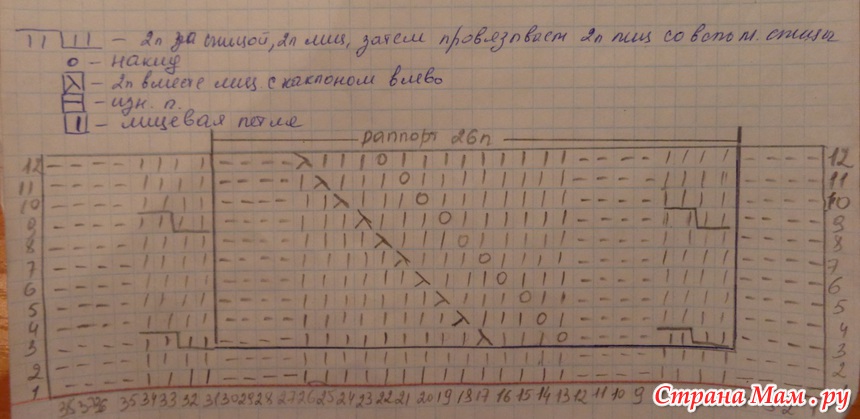 11 11 — 2п за спицой, 2п лиц, затем провязывает 2п лиц со вспом. спицы
о — накид
λ — 2п вместе лиц с наклоном влево
— изн. п.
I — лицевая петля
раппорт 26п
12 12
11 11
10 10
9 9
8 8
7 7
6 6
5 5
4 4
3 3
2 2
1 35 34 33 32 31 30 29 28 27 26 25 24 23 22 21 20 19 18 17 16 15 14 13 12 11 10 9
Страна Мам.ру